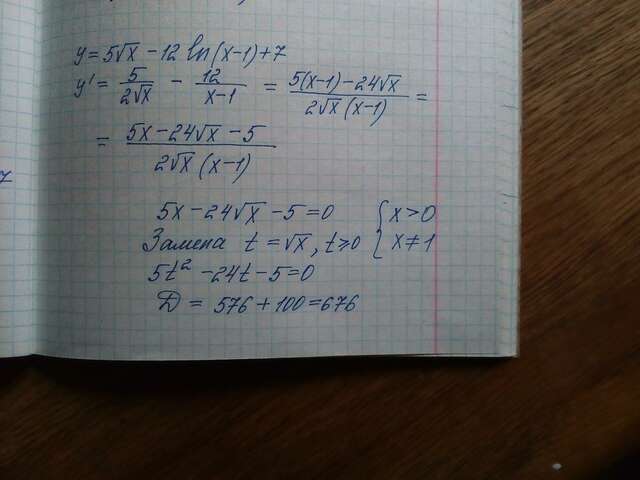 y = 5√x − 12 ln(x−1) + 7
y' = 5/(2√x) − 12/(x−1) = (5(x−1) − 24√x)/(2√x (x−1)) =
= (5x − 24√x − 5)/(2√x (x−1))
5x − 24√x − 5 = 0 { x > 0
Замена t = √x, t ≥ 0 { x ≠ 1
5t² − 24t − 5 = 0
D = 576 + 100 = 676